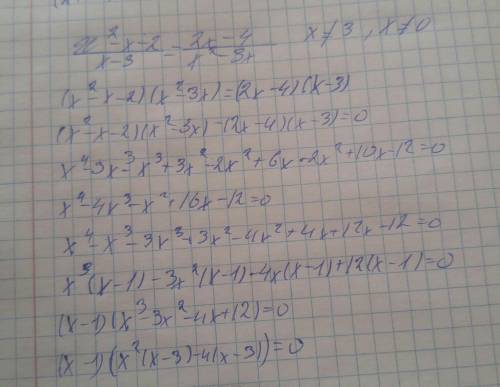 (x²-x-2)/(x-3) = (2x-4)/(x²-3x)   x≠3, x≠0
(x²-x-2)(x²-3x)=(2x-4)(x-3)
(x²-x-2)(x²-3x)-(2x-4)(x-3)=0
x⁴-3x³-x³+3x²-2x²+6x-2x²+10x-12=0
x⁴-4x³-x²+16x-12=0
x⁴-x³-3x³+3x²-4x²+4x+12x-12=0
x³(x-1)-3x²(x-1)-4x(x-1)+12(x-1)=0
(x-1)(x³-3x²-4x+12)=0
(x-1)(x²(x-3)-4(x-3))=0